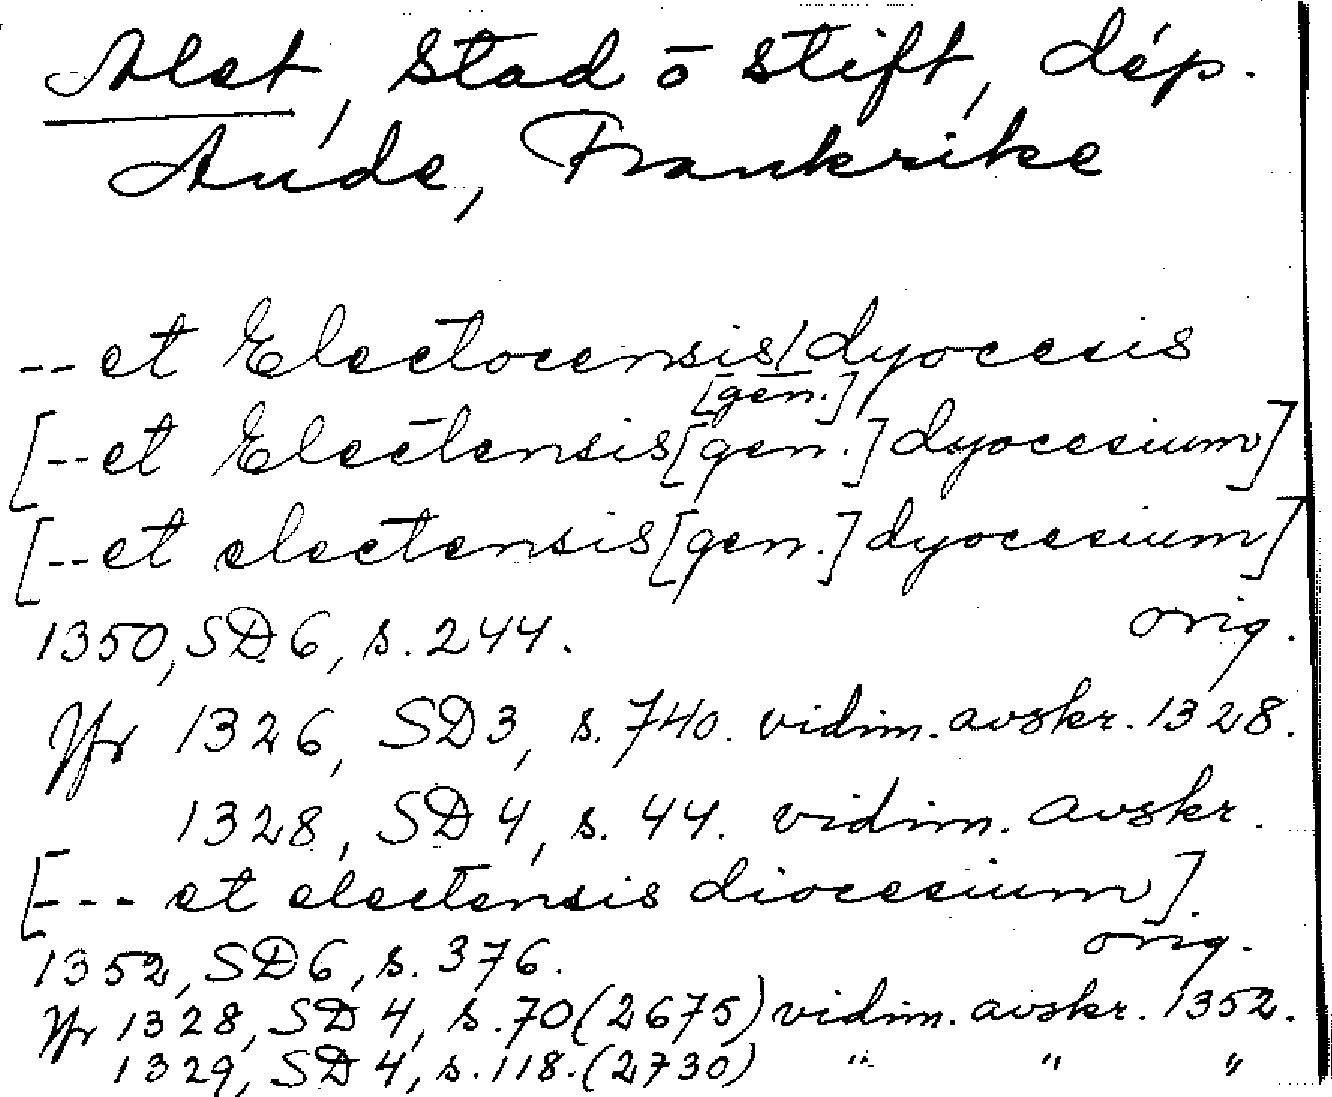 Alet, Stad o stift, dép.
Aude, Frankrike
-- et Electocensis / dyocesis
[gen.]
[-- et Electensis [gen.] dyocesium]
[-- et electensis [gen.] dyocesium]
1350, SD 6, s. 244. orig.
Jfr 1326, SD 3, s. 740. vidim. avskr. 1328.
1328, SD 4, s. 44. vidim. avskr.
[--- et electensis diocesium].
1352, SD 6, s. 376. orig.
Jfr 1328, SD 4, s. 70 (2675) vidim. avskr. 1352.
1329, SD 4, s. 118. (2730) " " "